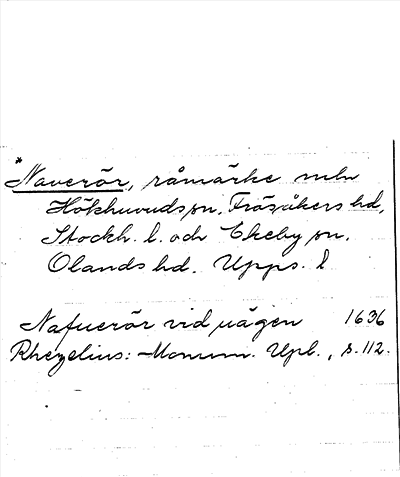 *Naverör, råmärke mln
Hökhuvuds sn, Frösåkers hd,
Stockh. l. och Ekeby sn,
Olands hd. Upps. l
Nafuerör vid uägen 1636
Rhezelius: Monum. Upl., s. 112.